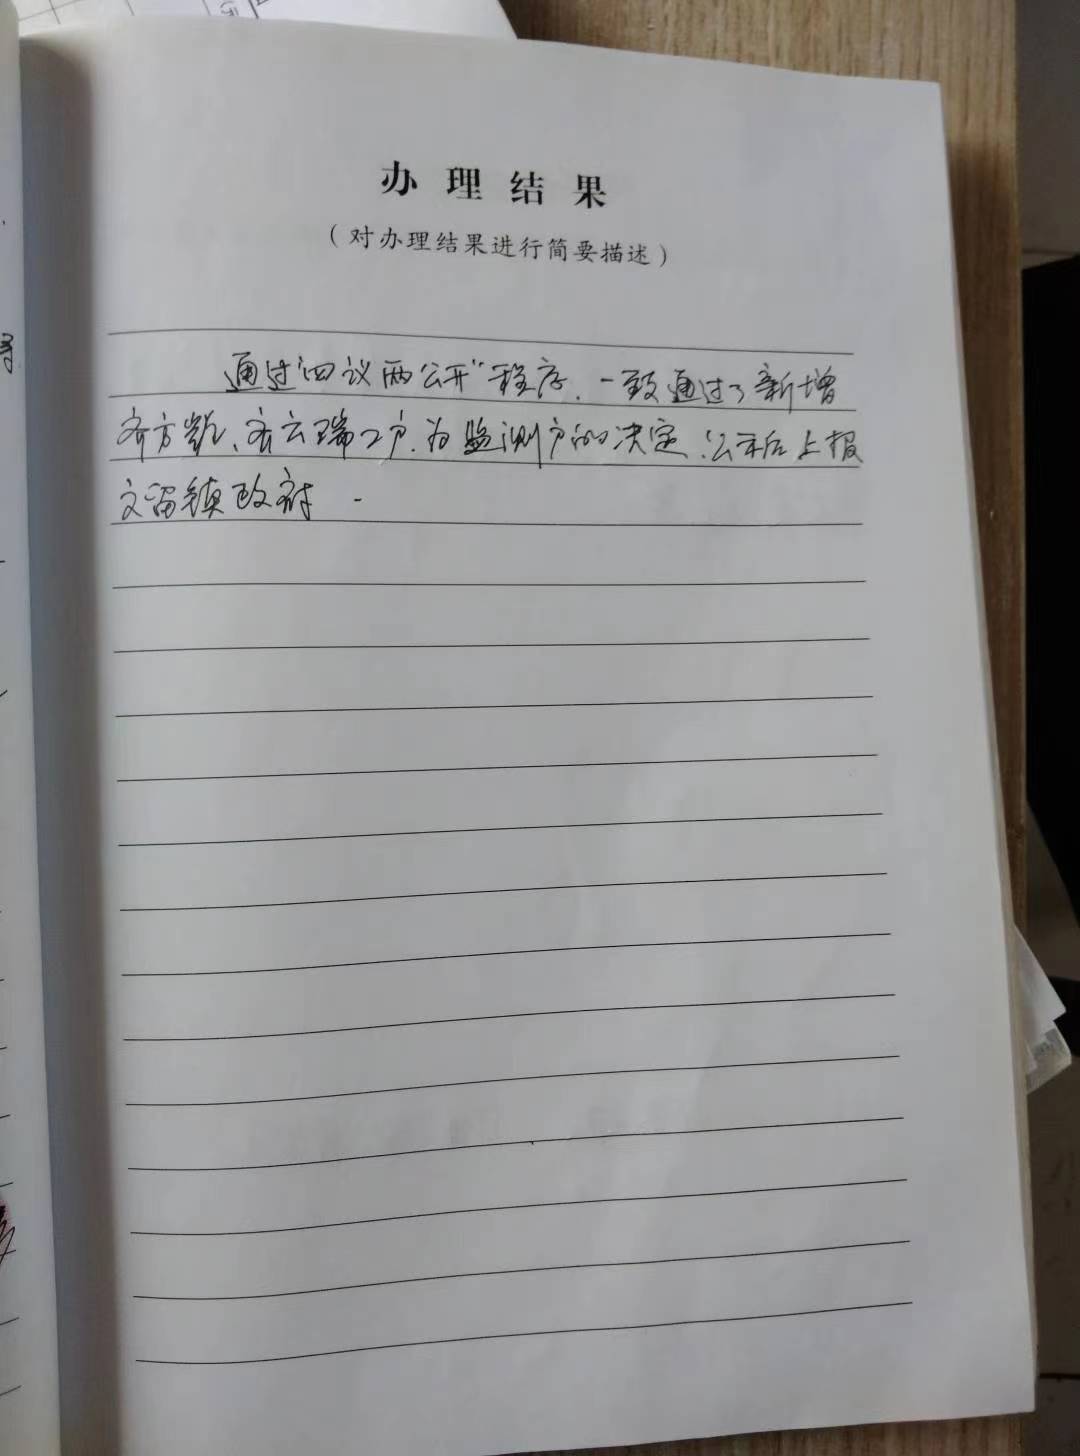 办理结果
（对办理结果进行简要描述）
通过“四议两公开”程序，一致通过了新增
齐方、齐云瑞2户，为监测户的决定，公示后上报
文留镇政府。